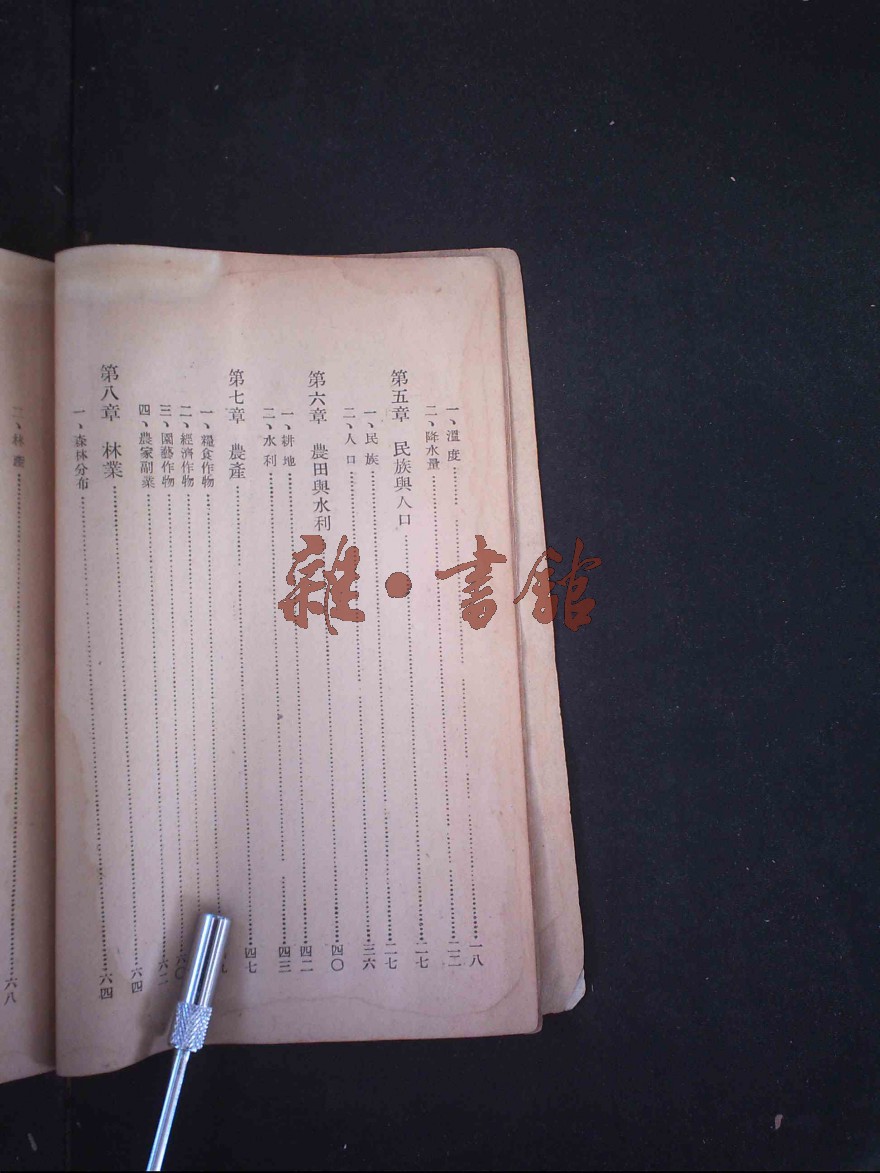 一、溫度 一八
二、降水量 二二
第五章 民族與人口 二七
一、民族 二七
二、人口 三六
第六章 農田與水利 四〇
一、耕地 四二
二、水利 四三
第七章 農產 四七
一、糧食作物
二、經濟作物
三、園藝作物 六〇
四、農家副業 六二
第八章 林業 六四
一、森林分布 六四
二、林產 六八
雜·書館